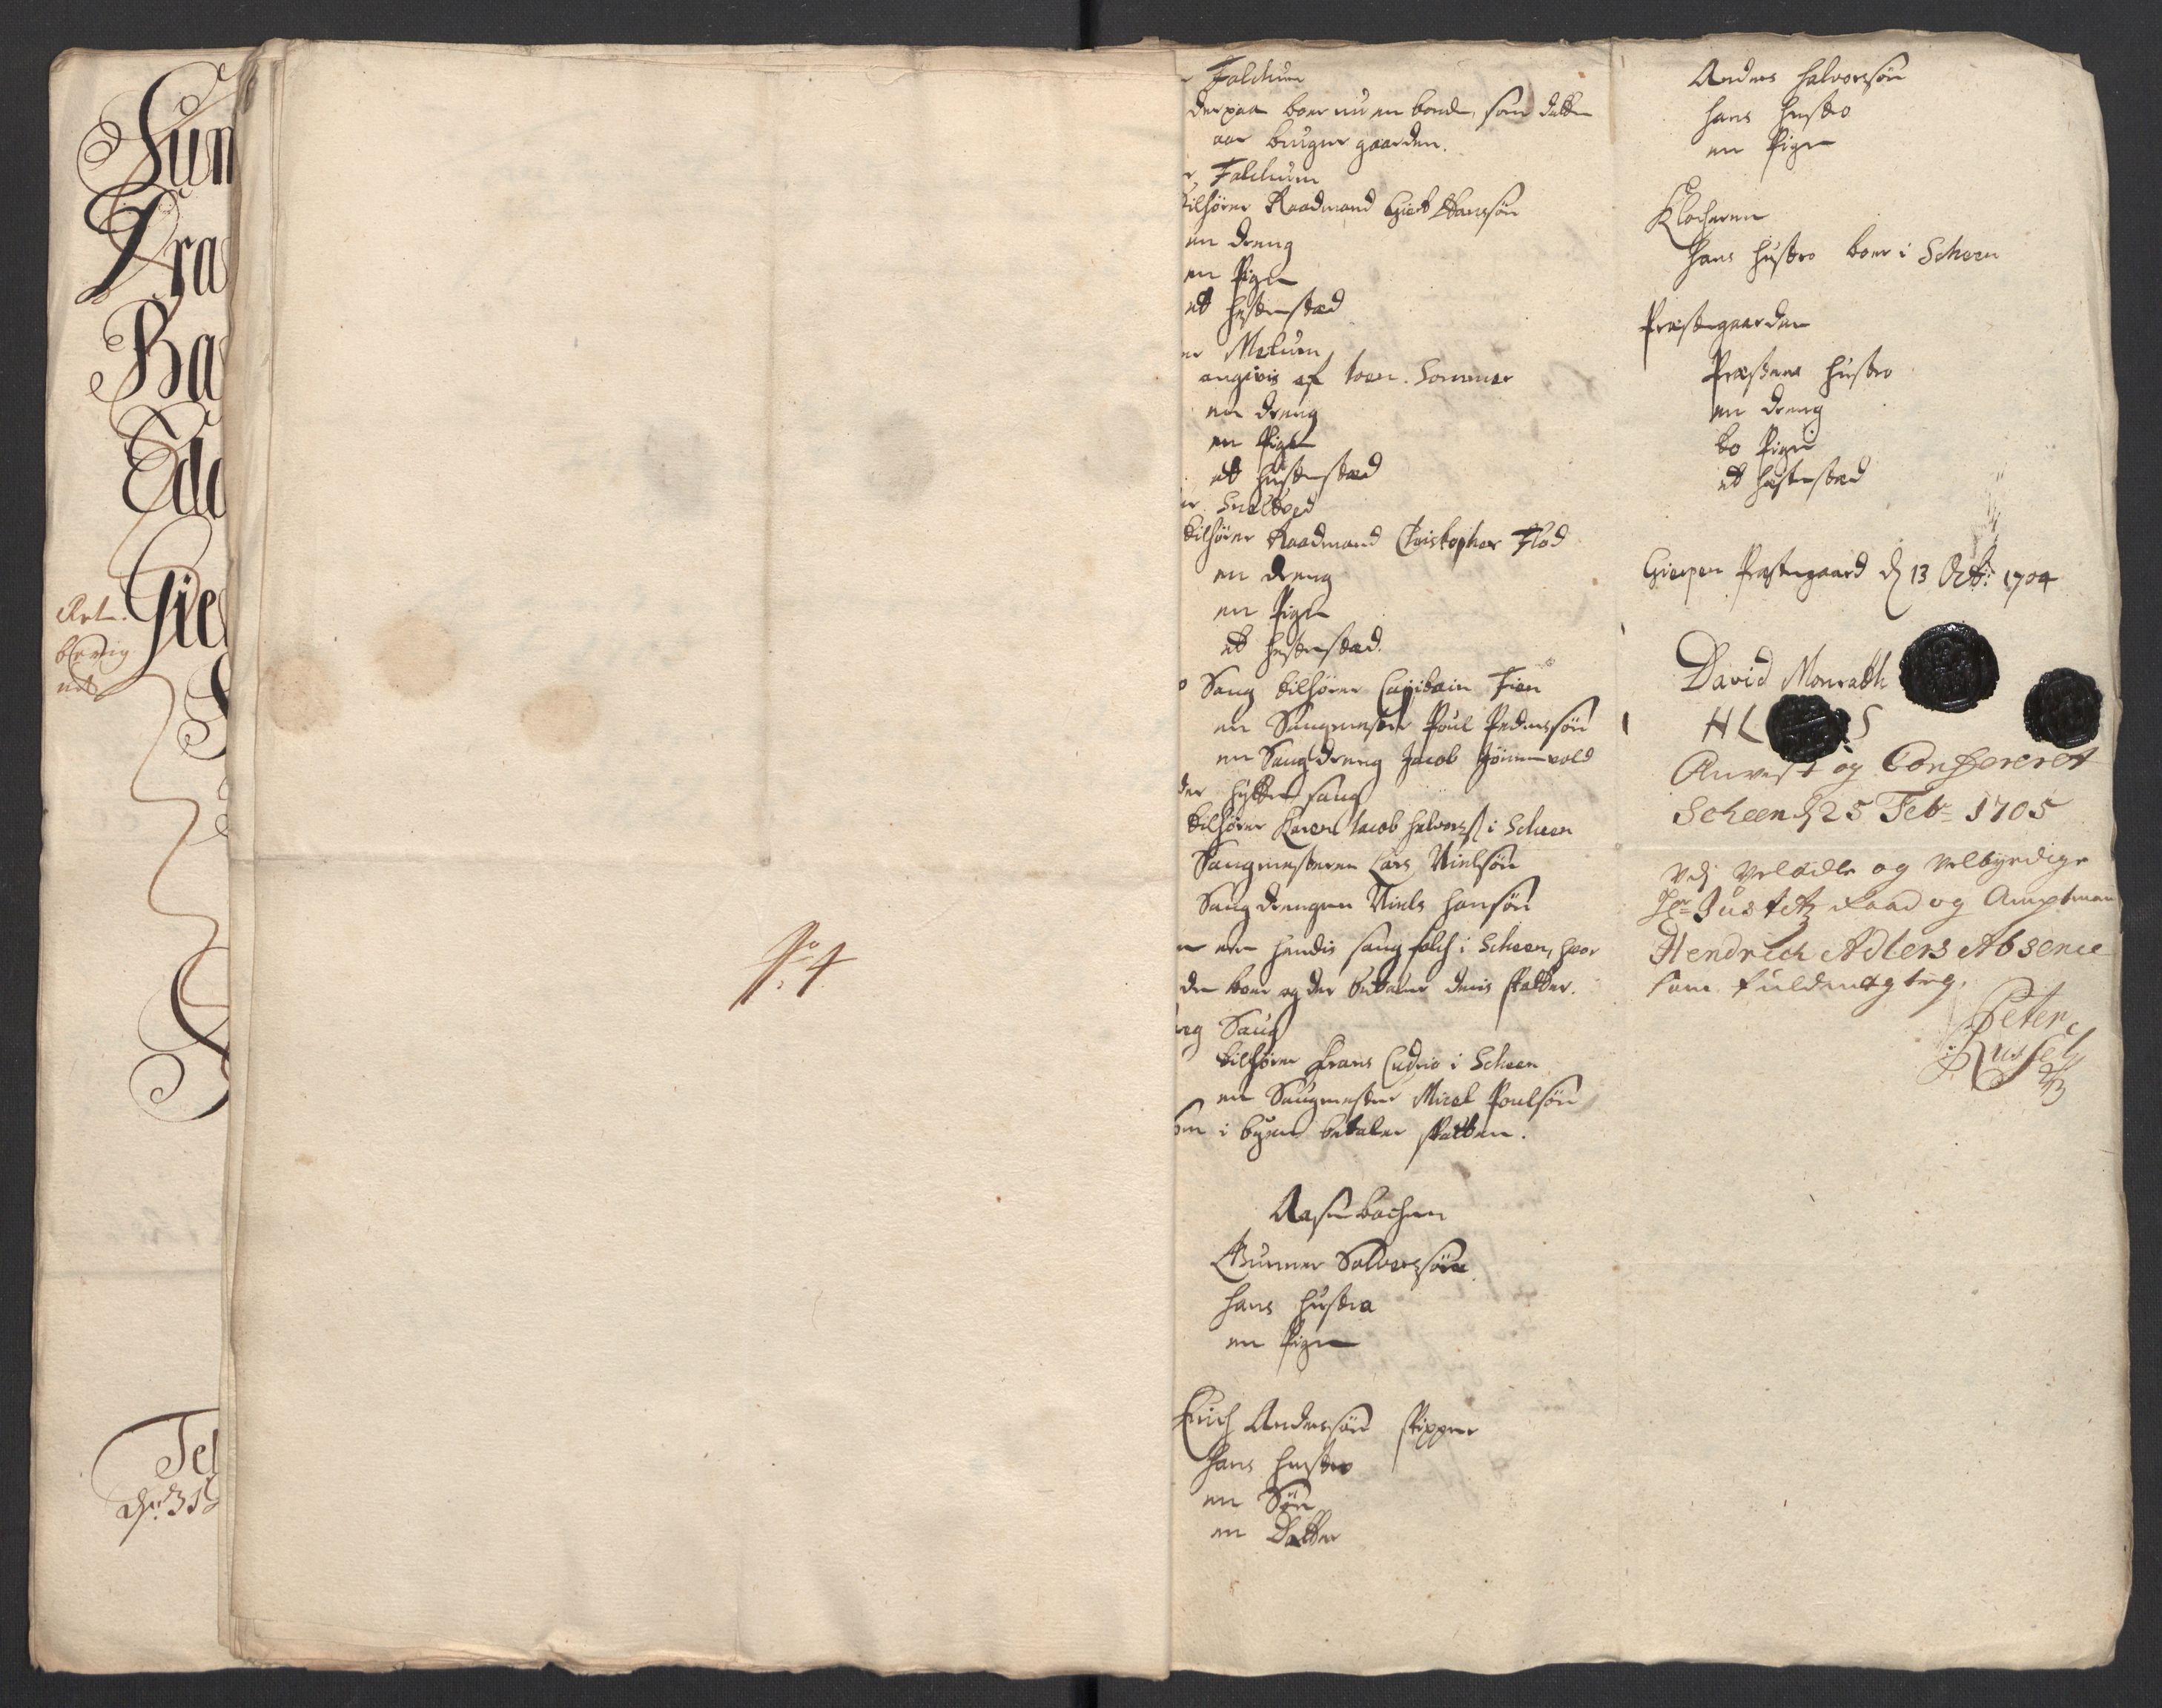 Sum
Pra
Ba
Edd
Gie
Tel
No 4
Falchum
der paa boer nu en bonde, som dette
aar bruger gaarden.
Falchum
tilhører Raadmand Giert Hansøn
en dreng
en Pige
et hestestæd
Mælum
angivis af Sommer
en dreng
en Pige
et hestestæd
tilhører Raadmand Christopher Flod
en dreng
en Pige
et hestestæd
Saug tilhører Capitain
en Saugmester Poul Pederssøn
en Saugdreng Jacob
der hytten saug
tilhører Karen Jacob halvorss i Scheen
Saugmesteren Lars Nielsøn
Saug drengen Niels hansøn
hendis saug folch i Scheen, hvor
de boer og der betaler deris skatter.
Saug
tilhører Frans Cudrio i Scheen
en Saugmester Micel Poulsøn
som i byen betaler skatten.
Aasebachen
Gunner Solverssøn
hans hustro
en Pige
Erich Anderssøn skipper
hans hustro
en Søn
en Datter
Anders halvorssøn
hans hustro
en Pige
Klocheren
hans hustro boer i Scheen
Præstegaarden
Præstens hustro
en dreng
to Piger
et hestestæd
Gierpen Præstegaard d 13 Octb: 1704
David Monrath
H L S
Anvist og Confereret
Scheen d 25 Feb: 1705
Udj Velædle og velbyrdige
Hr Justitz Raad og Amptmand
Hendrich Adlers Absence
som fuldmegtig.
Peter
Russel